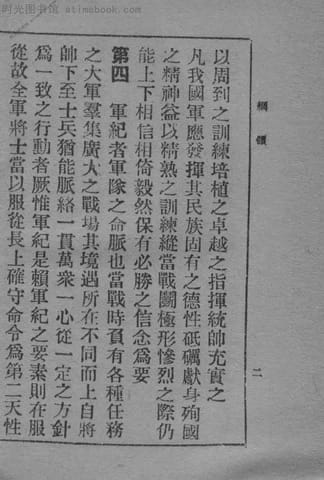 时光图书馆 · atimebook.com
綱領
二
以周到之訓練培植之卓越之指揮統帥充實之
凡我國軍應發揮其民族固有之德性砥礪獻身殉國
之精神益以精熟之訓練縱當戰鬭極形慘烈之際仍
能上下相信相倚毅然保有必勝之信念爲要
第四 軍紀者軍隊之命脈也當戰時負有各種任務
之大軍羣集廣大之戰場其境遇所在不同而上自將
帥下至士兵猶能脈絡一貫萬衆一心從一定之方針
爲一致之行動者厥惟軍紀是賴軍紀之要素則在服
從故全軍將士當以服從長上確守命令爲第二天性